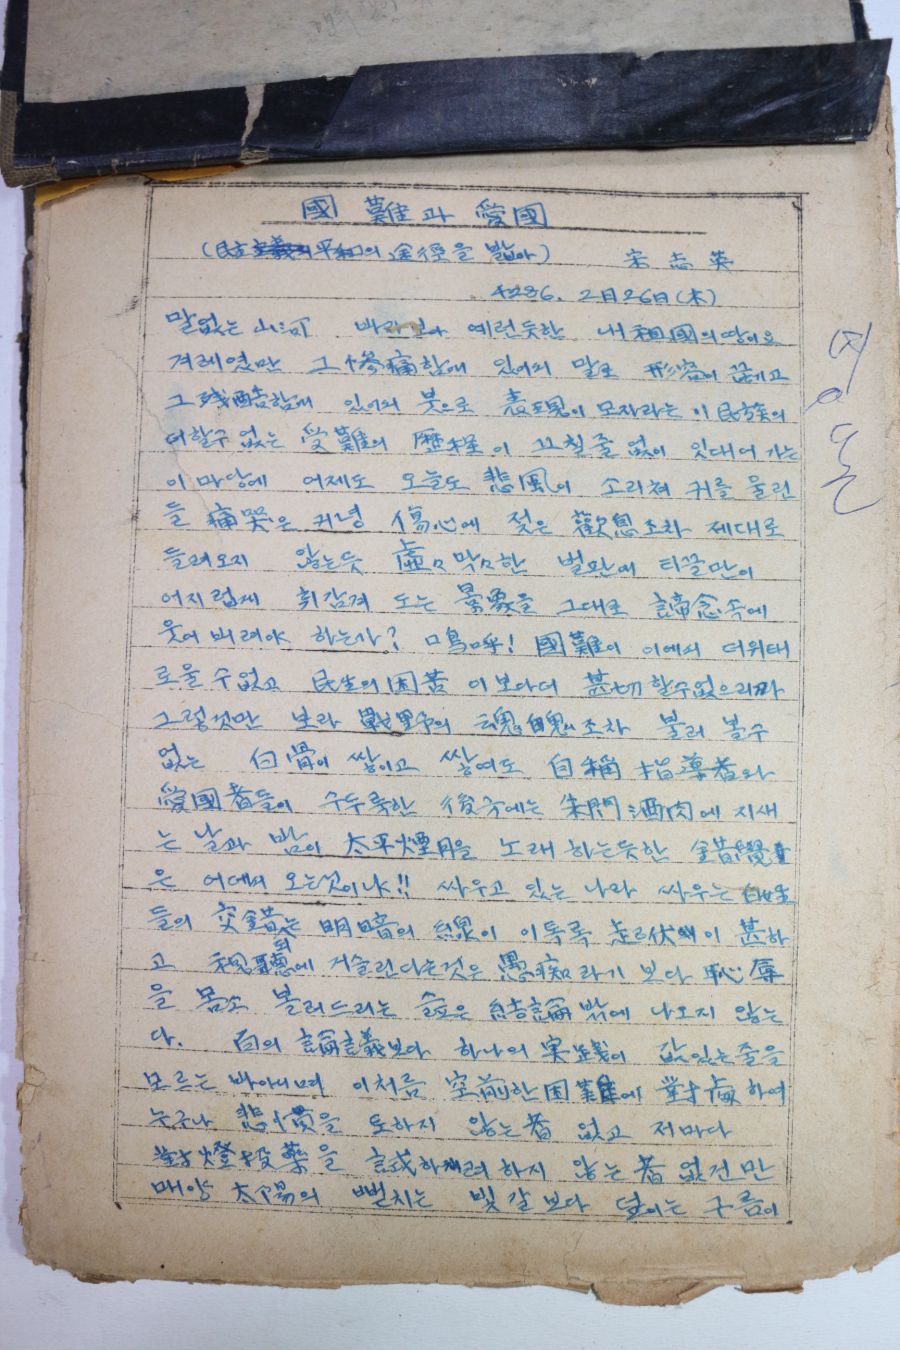 國難과 愛國
(民主主義와 平和의 途徑을 밟아) 宋志英
4286. 2月26日(木)
말없는 山河 바라보아 예런듯한 내 祖國의 땅이요
겨레였만 그 慘痛함에 있어서 말로 形容이 끊기고
그 殘酷함에 있어서 붓으로 表現이 모자라는 이 民族의
더할수 없는 受難의 歷程이 끄칠줄 없이 잇대어 가는
이 마당에 어제도 오늘도 悲風이 소리쳐 귀를 울린
들 痛哭은 커녕 傷心에 젖은 歎息조차 제대로
들려오지 않는듯 虛々막々한 벌판에 티끌만이
어지럽게 휘감겨 도는 景象을 그대로 諦念속에
웃어버려야 하는가? 嗚呼! 國難이 이에서 더위태
로울 수 없고 民生의 困苦 이보다 더 甚切할수없으리라
그렇것만 보라 戰野의 魂魄조차 불러 볼수
없는 白骨이 쌓이고 쌓여도 自稱 指導者와
愛國者들이 수두룩한 後方에는 朱門酒肉에 지새
는 날과 밤이 太平煙月을 노래하는듯한 錯覺
은 어데서 오는것이냐!! 싸우고 있는 나라 싸우는 百姓
들의 交錯되는 明暗의 線이 이토록 起伏이 甚하
고 視聽에 거슬린다는것은 愚痴라기 보다 恥辱
을 몸소 불러드리는 슬픈 結論밖에 나오지 않는
다. 百의 論議보다 하나의 實踐이 값있는줄을
모르는바 아니며 이처름 空前한 国難에 對處하여
누구나 悲憤을 토하지 않는者 없고 저마다
對燈投藥을 試하려 하지 않는 者 없건만
매양 太陽의 뻗치는 빛갈보다 덮이는 구름이
영돈